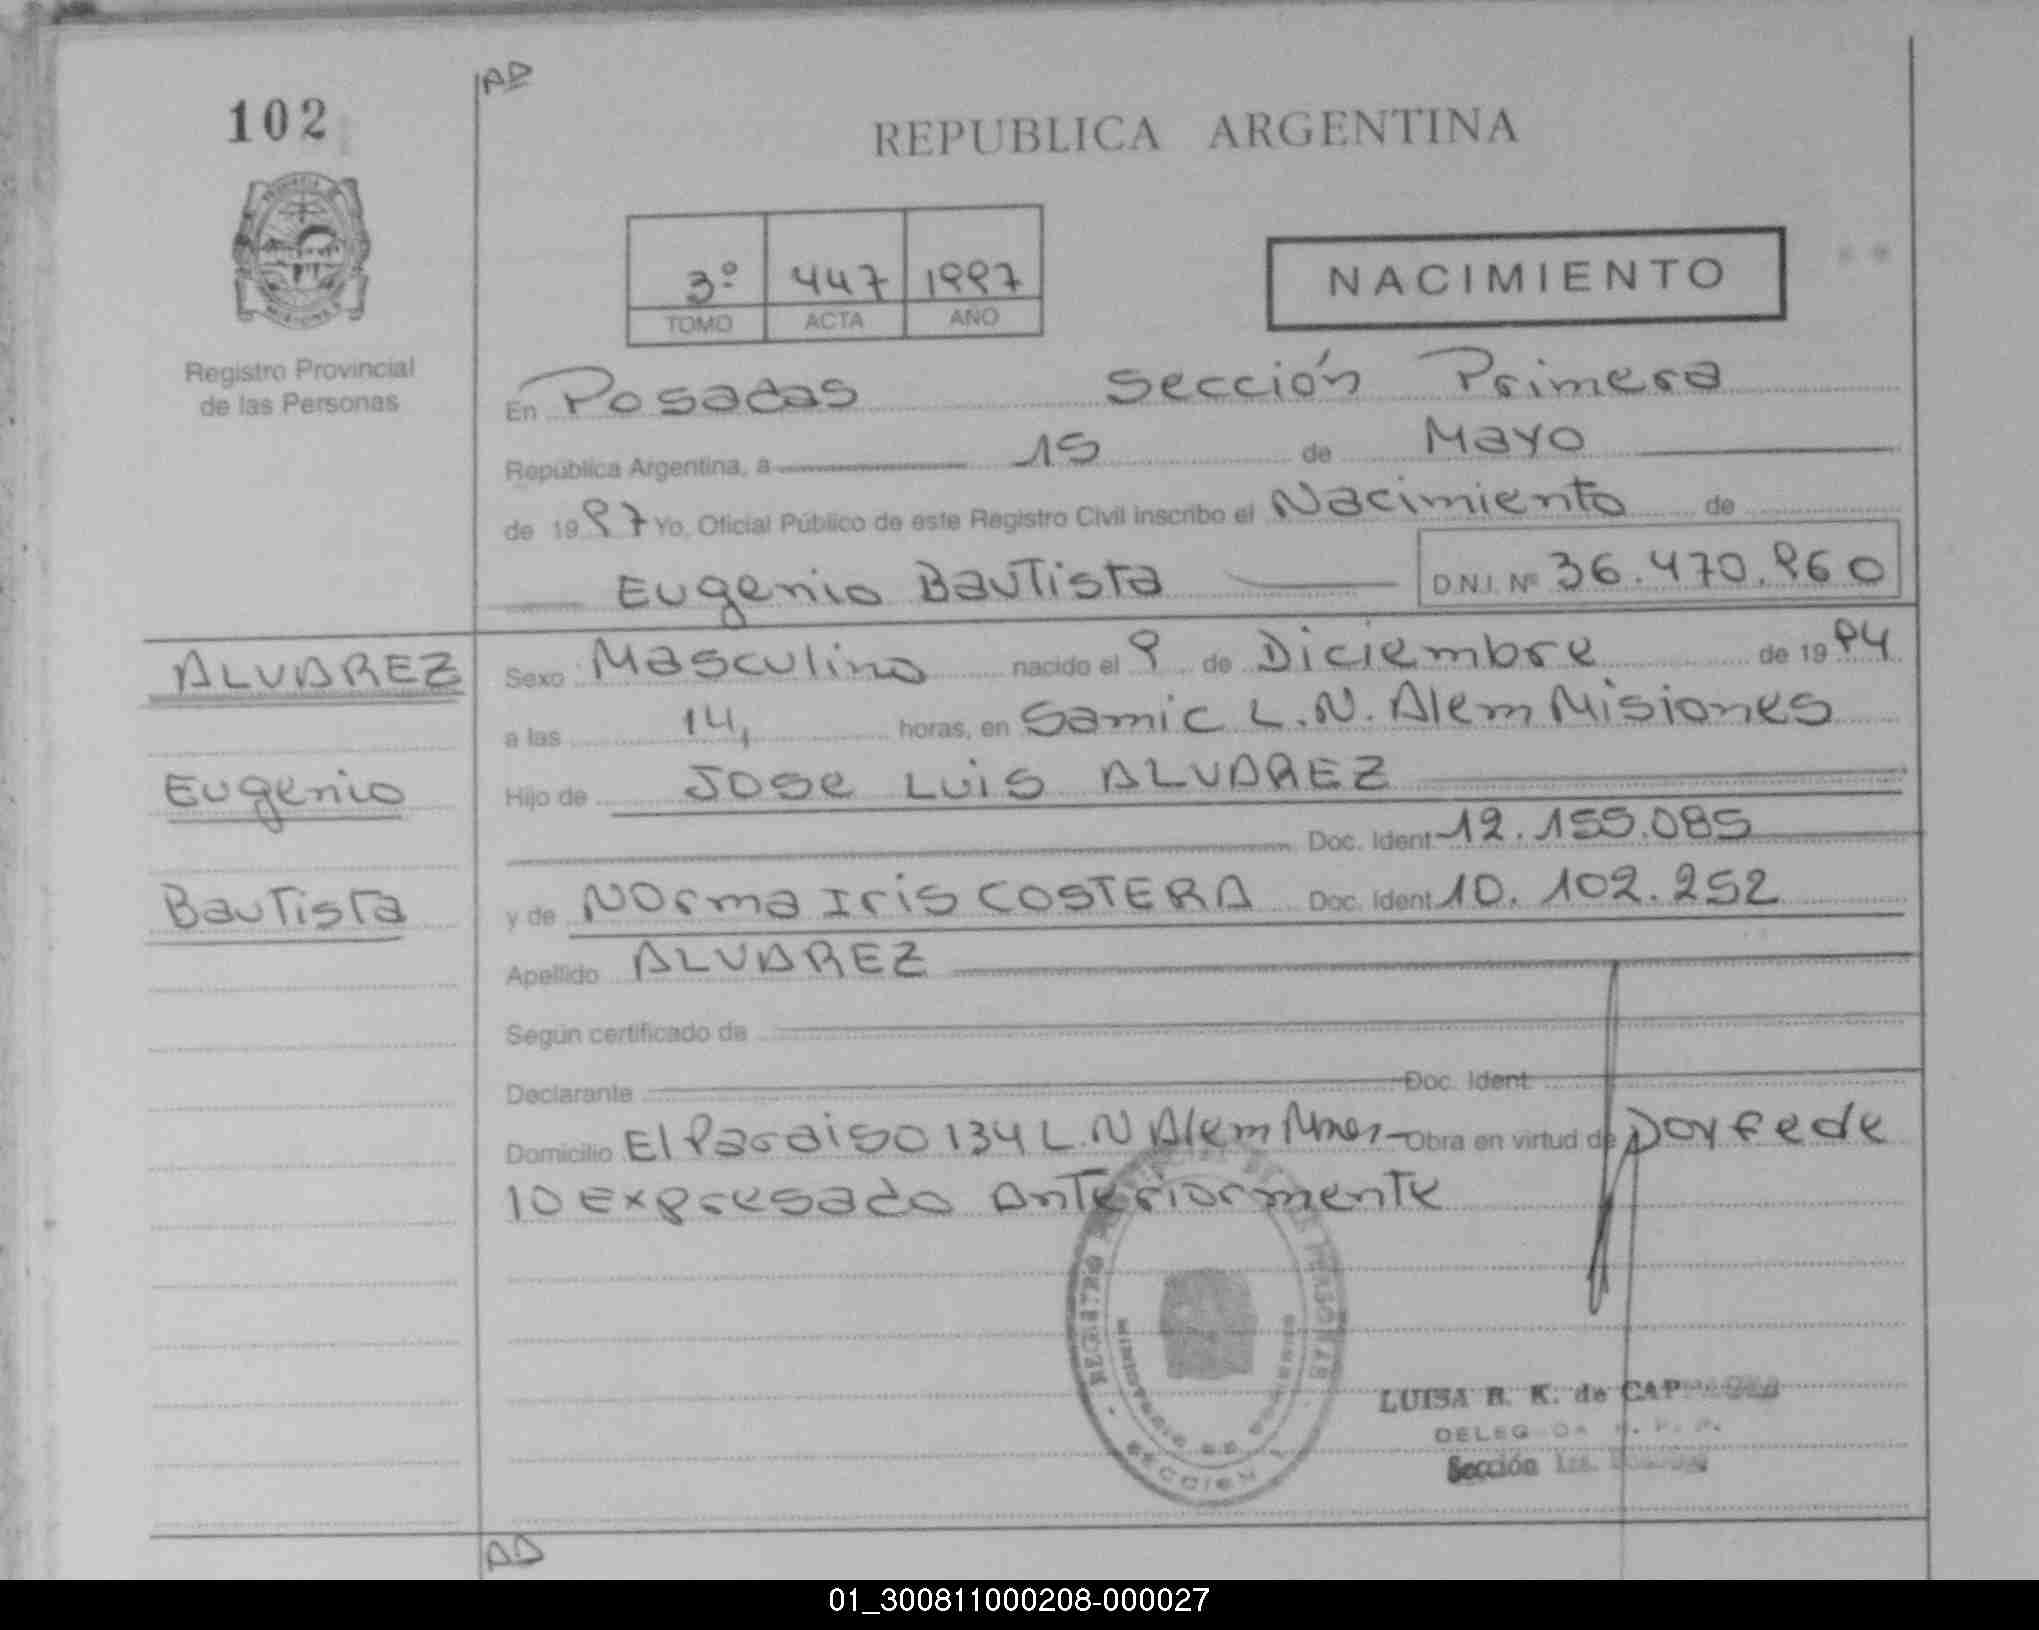 AD
102
REPUBLICA ARGENTINA
3º 447 1997
TOMO ACTA AÑO
NACIMIENTO
Registro Provincial
de las Personas
En Posadas Sección Primera
República Argentina, a 15 de Mayo
de 1997 Yo, Oficial Público de este Registro Civil inscribo el Nacimiento de
Eugenio Bautista D.N.I. Nº 36.470.960
ALVAREZ
Eugenio
Bautista
Sexo Masculino nacido el 9 de Diciembre de 1994
a las 14, horas, en Samic L.N. Alem Misiones
Hijo de Jose Luis ALVAREZ
Doc. Ident 12.155.085
y de Norma Iris COSTERA Doc. Ident 10.102.252
Apellido ALVAREZ
Según certificado de
Declarante Doc. Ident
Domicilio El Paraiso 134 L.N Alem Mnes Obra en virtud de Doy fe de
lo expresado anteriormente
MINISTERIO DE GOBIERNO
SECCION 1
LUISA R. K. de
Sección
AD
01_300811000208-000027